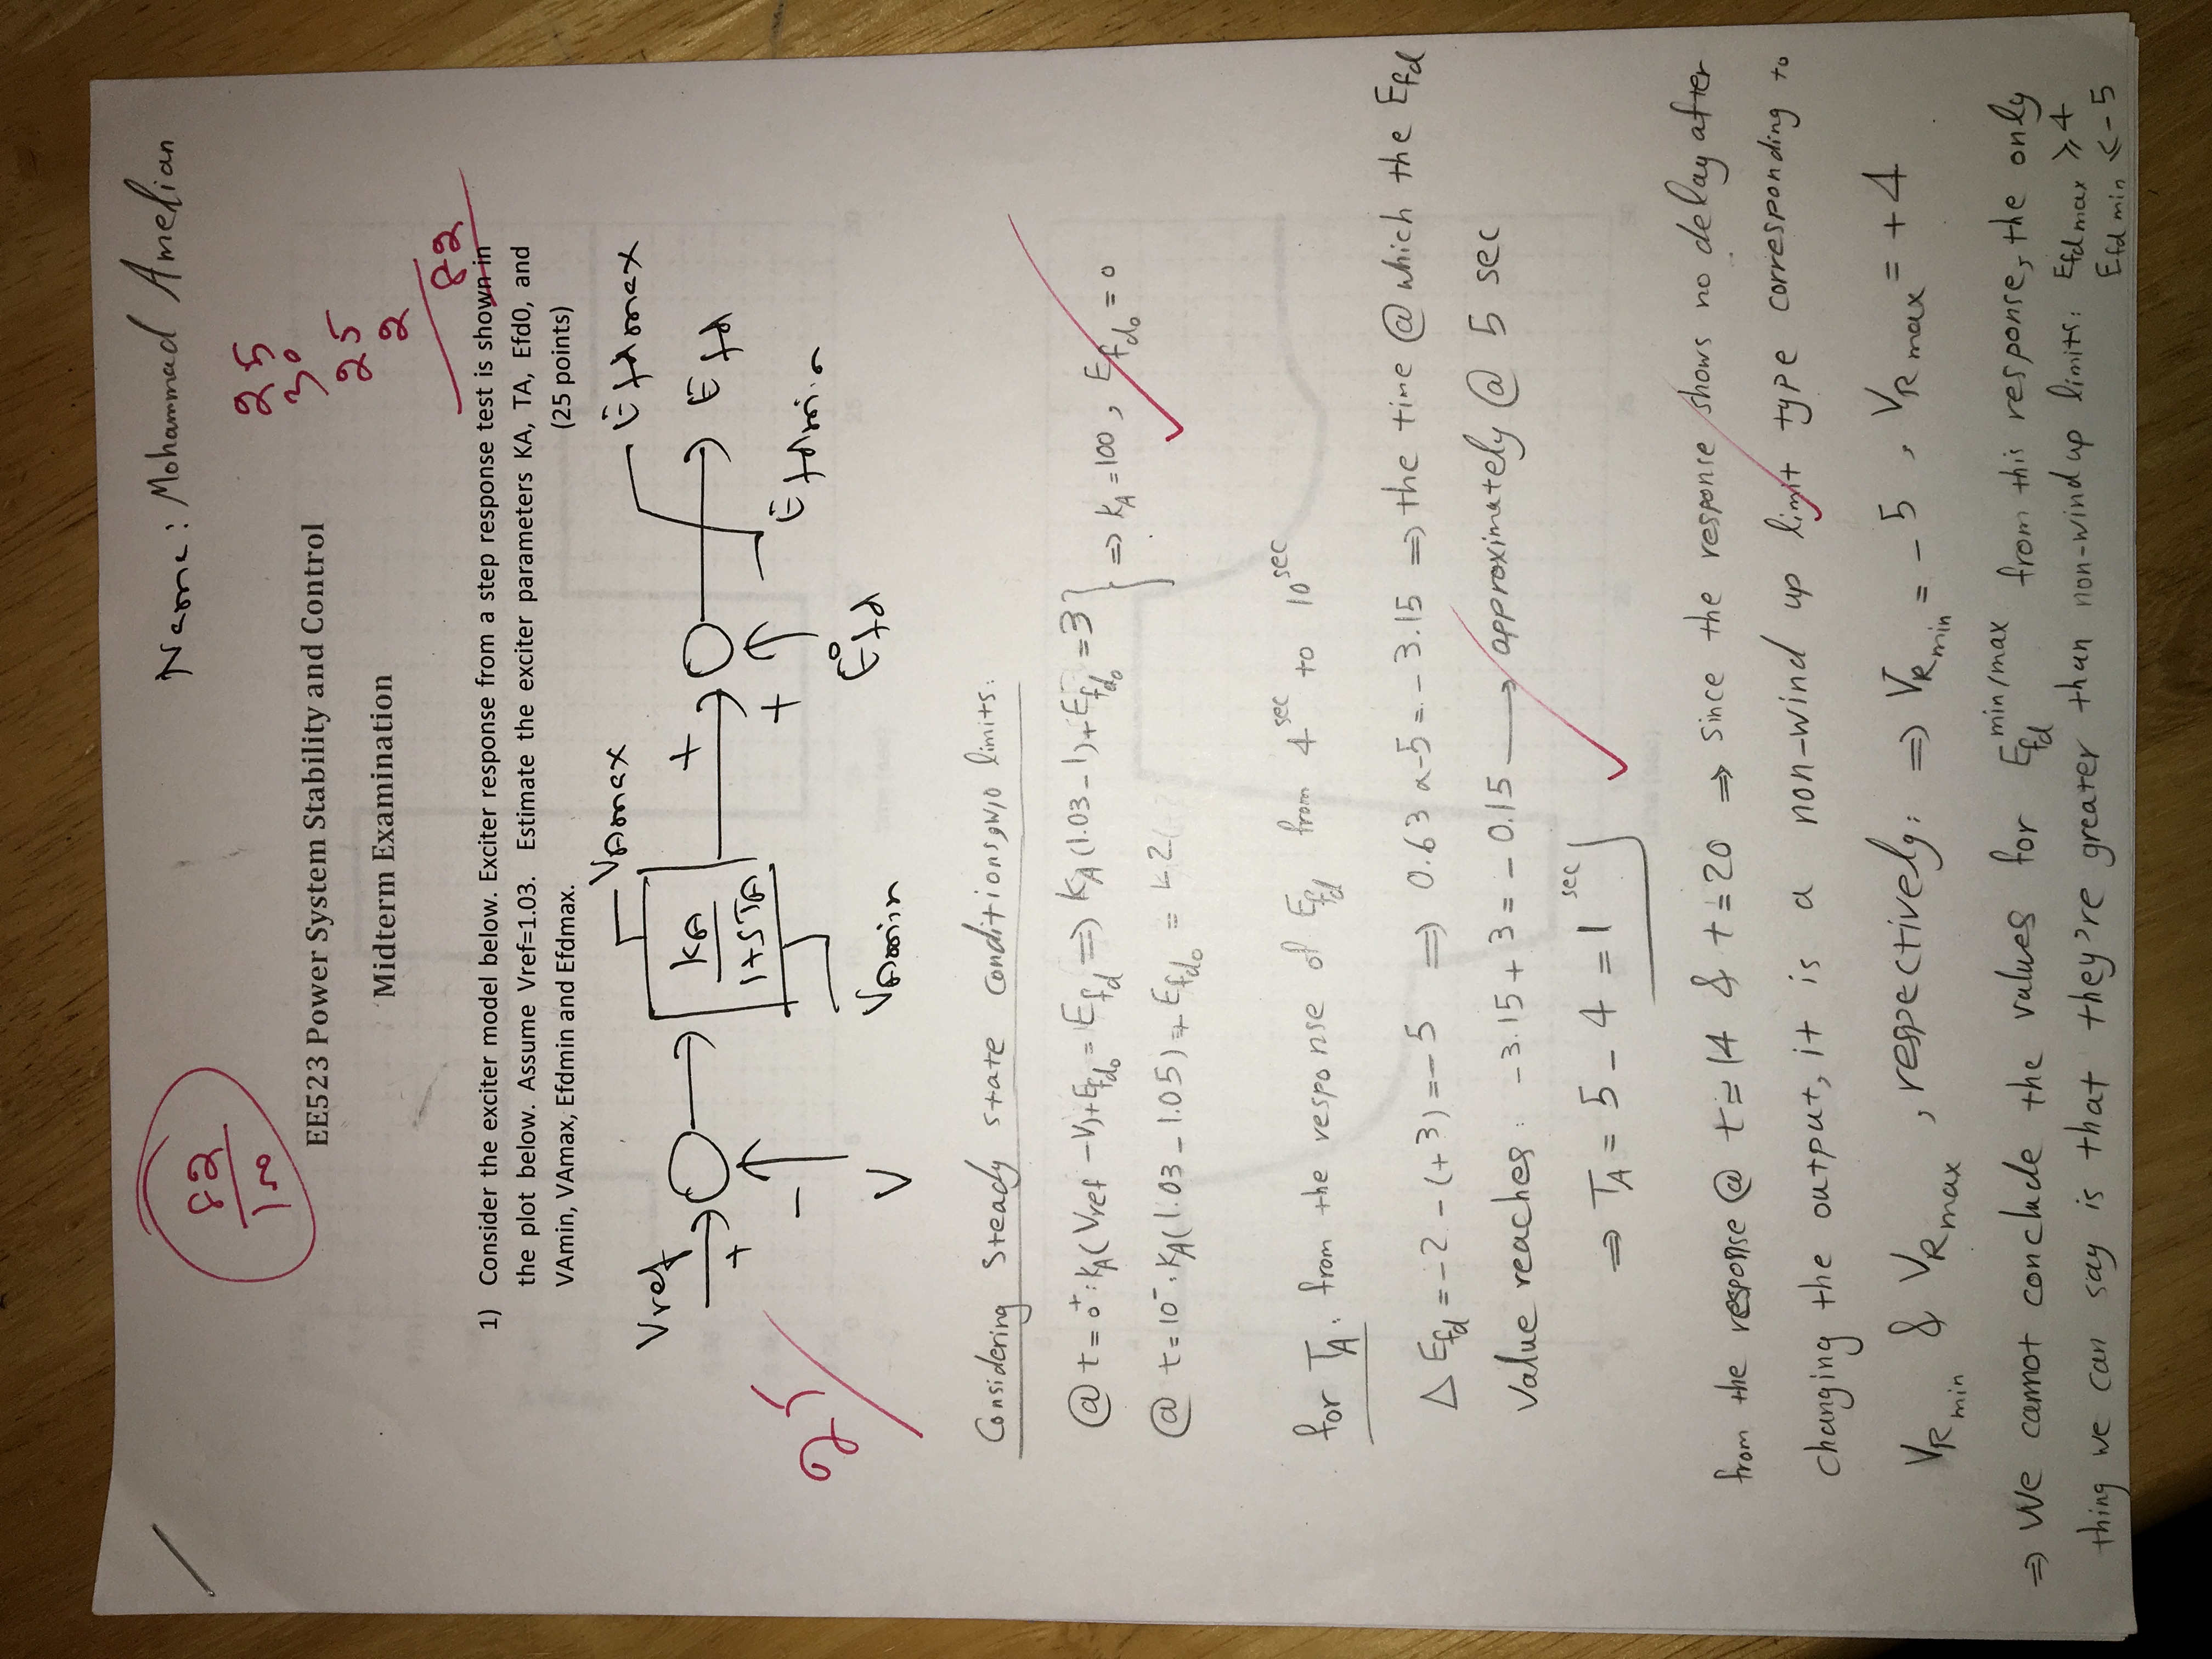 Name: Mohammad Amelian
82
100
25
30
25
2
82
EE523 Power System Stability and Control
Midterm Examination
1) Consider the exciter model below. Exciter response from a step response test is shown in
the plot below. Assume Vref=1.03. Estimate the exciter parameters KA, TA, Efd0, and
VAmin, VAmax, Efdmin and Efdmax. (25 points)
VAmax
Efdmax
Vref
+
KA
1+STA
+
Efd
-
+
Efdmin
V
VAmin
E°fd
25
Considering Steady state conditions, w/o limits:
@ t = 0⁺: KA(Vref - V)+Efd0 = Efd ⇒ KA(1.03-1)+Efd0 = 3
⇒ KA = 100, Efd0 = 0
@ t = 10⁻: KA(1.03 - 1.05) + Efd0 = -2
for TA: from the response of Efd from 4 sec to 10 sec
Δ Efd = -2 - (+3) = -5 ⇒ 0.63 x -5 = -3.15 ⇒ the time @ which the Efd
value reaches: -3.15 + 3 = - 0.15 → approximately @ 5 sec
⇒ TA = 5 - 4 = 1 sec
from the response @ t≈14 & t=20 ⇒ since the response shows no delay after
changing the output, it is a non-wind up limit type corresponding to
VRmin & VRmax, respectively: ⇒ VRmin = -5, VRmax = +4
⇒ We cannot conclude the values for Efd min/max from this response, the only
thing we can say is that they're greater than non-wind up limits: Efdmax ⩾ 4
Efdmin ⩽ -5